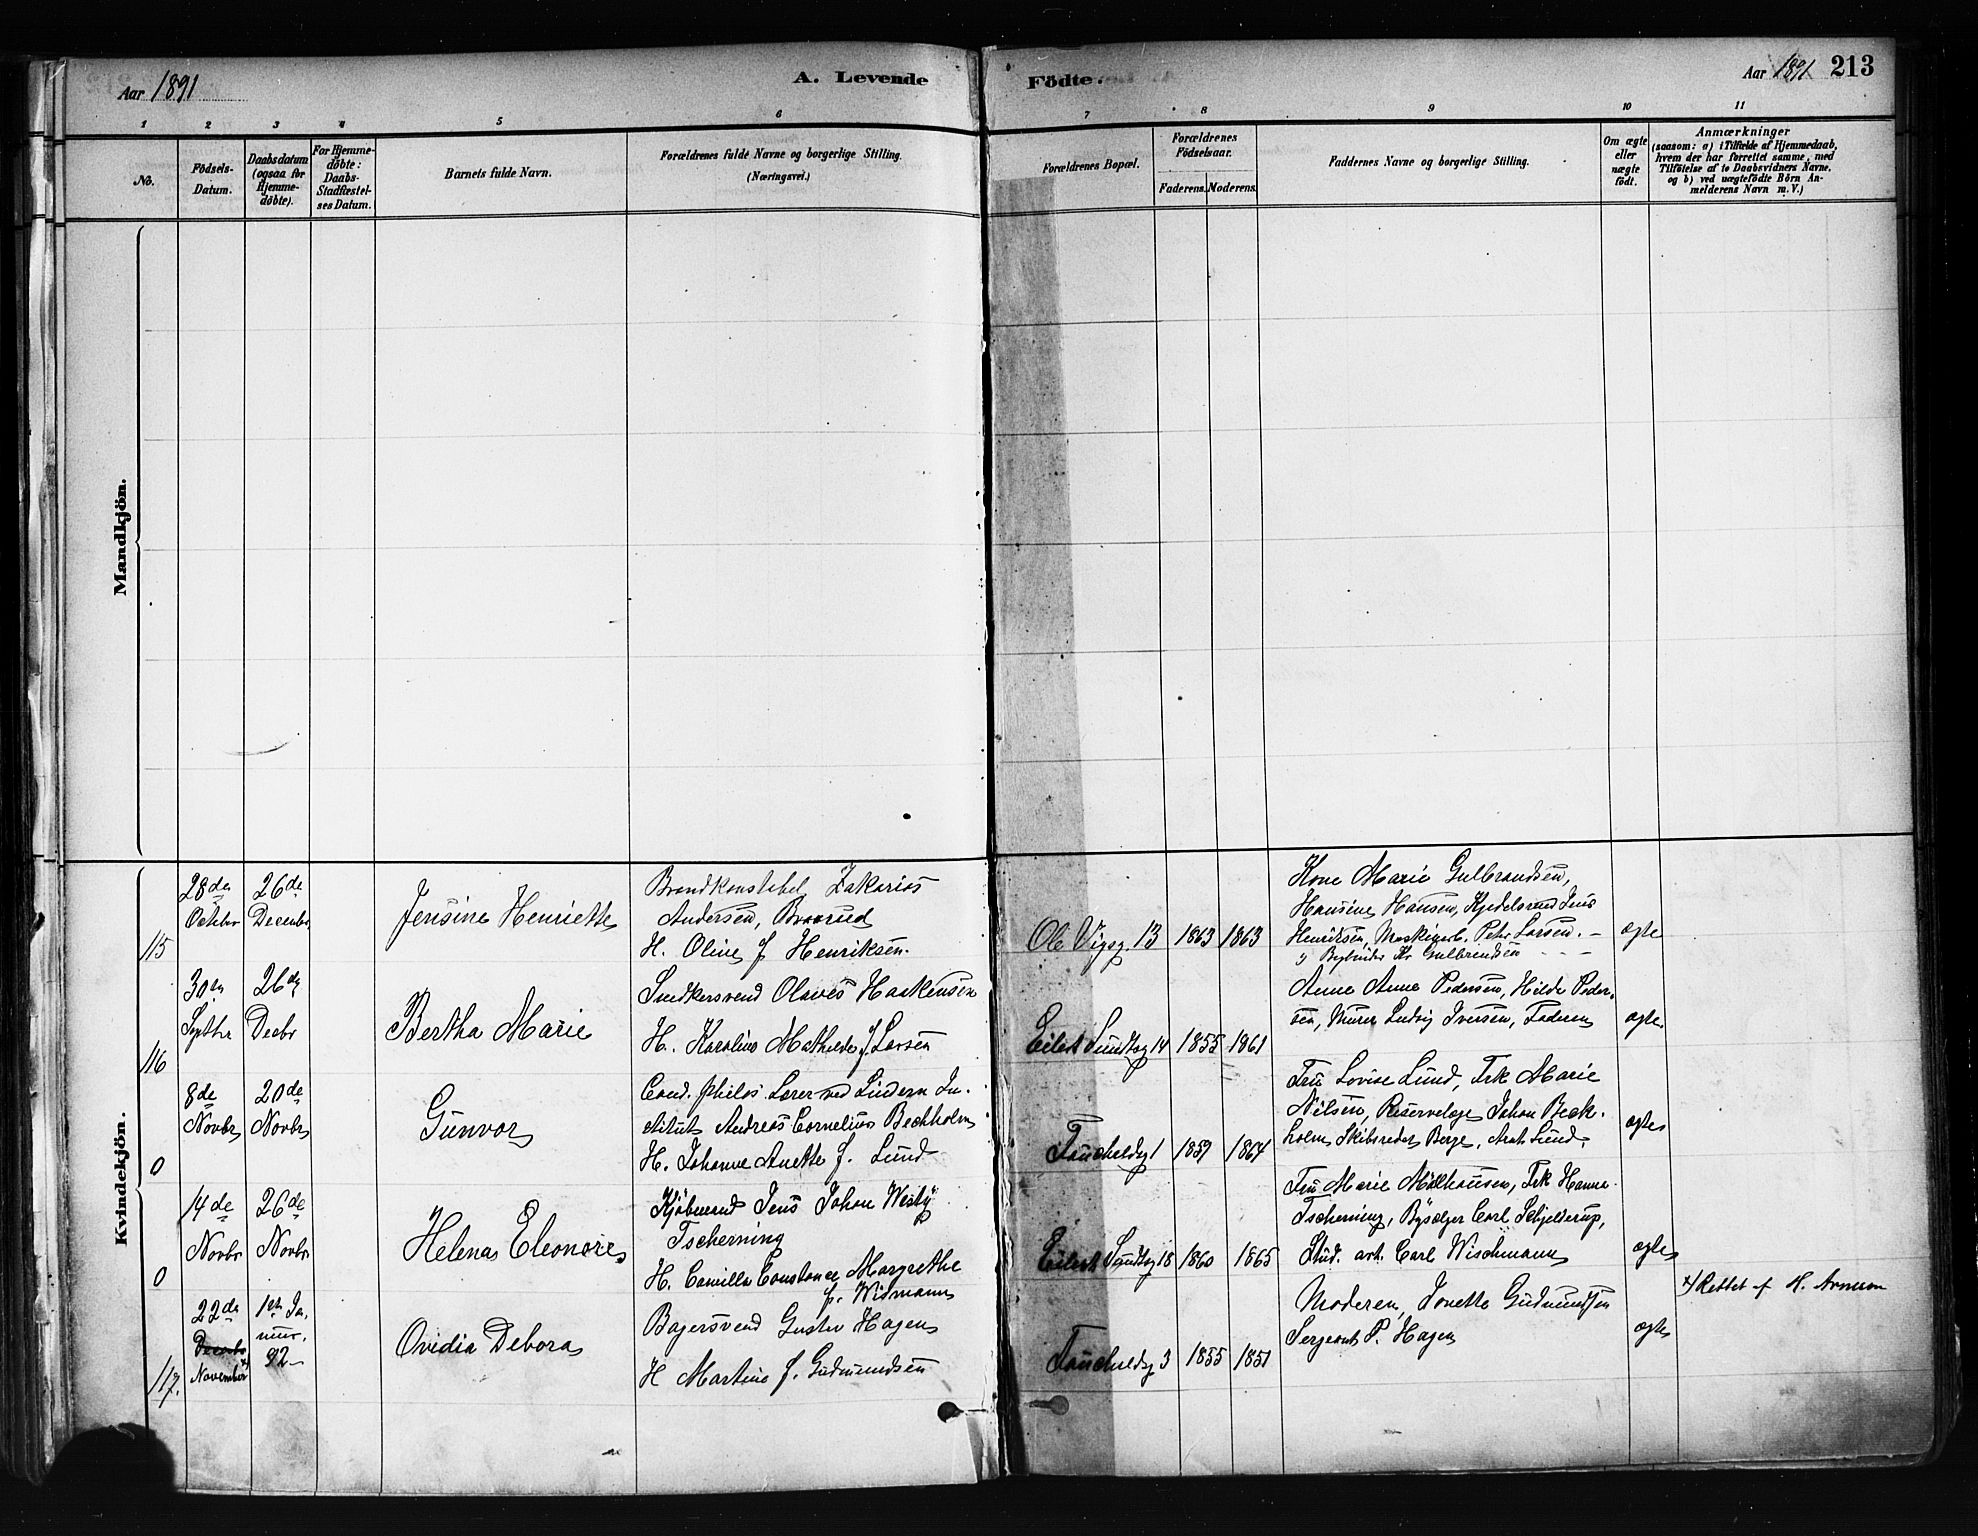 Aar 1891
A. Levende
Födte.
Aar 1891
213
1 2 3 4 5 6 7 8 9 10 11
No.
Födsels-
Datum.
Daabsdatum
(ogsaa for
Hjemme-
döbte).
For Hjemme-
döbte:
Daabs-
Stadfæstel-
ses Datum.
Barnets fulde Navn.
Forældrenes fulde Navne og borgerlige Stilling.
(Næringsvei.)
Forældrenes Bopæl.
Forældrenes
Födselsaar.
Faderens. Moderens.
Faddernes Navne og borgerlige Stilling.
Om ægte
eller
uægte
födt.
Anmærkninger
(saasom: a) i Tilfælde af Hjemmedaab,
hvem der har forrettet samme, med
Tilföielse af to Daabsvidners Navne,
og b) ved uægtefödte Börn An-
melderens Navn m. V.)
Mandkjön.
Kvindekjön.
115
28de
Octbr
26de
Decembr
Jensine Henriette
Brandkonstabel Zakarias
Andersen, Braarud
H. Oline f Henriksen
Ol. Vigsg. 13
1863
1863
Kone Marie Gulbrandsen,
Hansine Hansen, Kjedelsmed Jens
Henriksen, Maskinarb. Peter Larsen. –
Gulbrandsen
ægte
116
30te
Septbr
26de
Decbr
Bertha Marie
Snedkersvend Olaves Haakensen
H. Karoline Mathilde f Larsen
Eilert Sundtsg 14
1855
1861
Anne Anne Pedersen, Hilda Peder-
sen, Murer Ludvig Iversen, Faderen
ægte
0
8de
Novbr
20de
Novbr
Gunvor
Cand. philos. Lærer ved Lindern In-
stitut Andreas Cornelius Beckholm
H. Johanne Anette f. Lund
Fauchaldsg 1
1859
1864
Fru Lovise Lund, Frk Marie
Nilsen, Reservelæge Johan Beck-
holm, Skibsreder Berge, Lund
ægte
0
14de
Novbr
26de
Novbr
Helena Eleonore
Kjöbmand Jens Johan Westy
Tscherning
H. Camilla Constance Margrethe
f. Wismann
Eilert Sundtsg 18
1860
1865
Fru Marie Mølhausen, Frk Hanna
Tscherning, Carl Schjelderup,
Stud. art. Carl Wischmann
ægte
117.
22de
Decbr
November x)
1ste Ja-
nuar.
92
Ovidia Debora
Bagersvend Gustav Hagen
H Martine f. Gudmundsen
Fauchaldsg 3
1855
1851
Moderen, Jonette Gudmundsen
Sergeant P. Hagen
ægte
x) Rettet af H. Arnesen